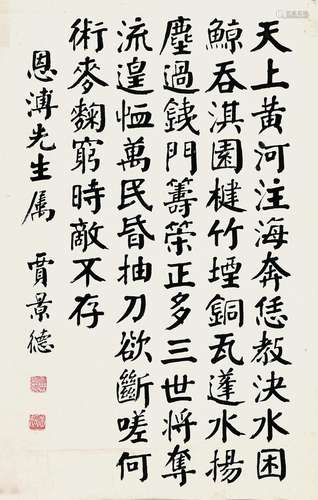 天上黃河注海奔恁教決水困
鯨吞淇園楗竹堙銅瓦蓬水揚
塵過鋨門籌策正多三世將奪
流遑恤萬民昏抽刀欲斷嗟何
術麥麴窮時敵不存
恩溥先生属
賈景德